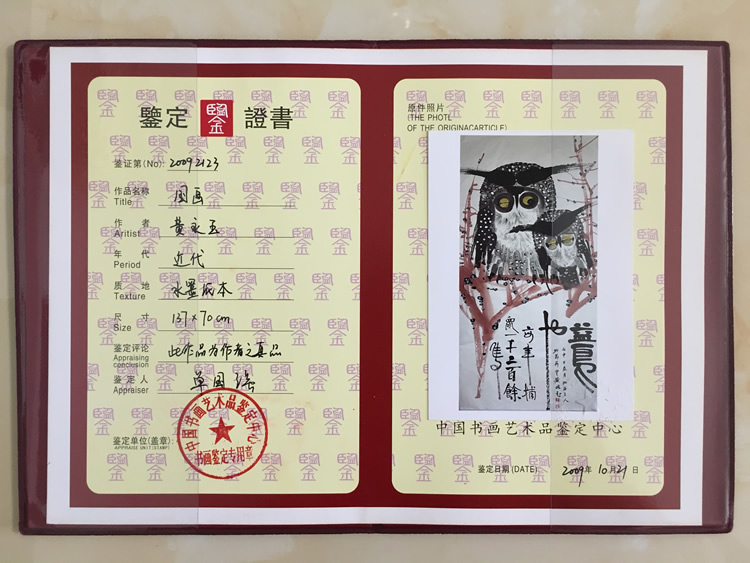 鑒定 鑒 證書
鉴证第(No): 20092123
作品名称 国画
Title
作者 黄永玉
Aritist
年代 近代
Period
质地 水墨纸本
Texture
尺寸 137×70cm
Size
鉴定评论 此作品为作者之真品
Appraising
conclusion
鉴定人 单国强
Appraiser
鉴定单位(盖章):
APPRAISE UNIT (STAMP)
中国书画艺术品鉴定中心
书画鉴定专用章
原件照片
(THE PHOTL
OF THE ORIGINACARTICLE)
益鸟也
每年捕
鼠一千二百餘
隻
中国书画艺术品鉴定中心
鉴定日期(DATE): 2009年 10月21日